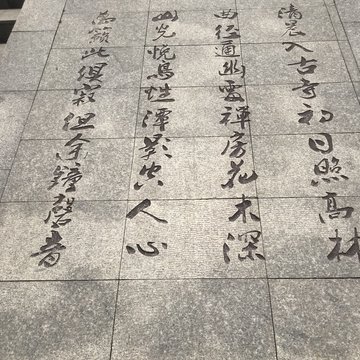 清晨入古寺初日照高林
曲径通幽處禪房花木深
山光悦鳥性潭影空人心
萬籟此俱寂但余鐘磬音